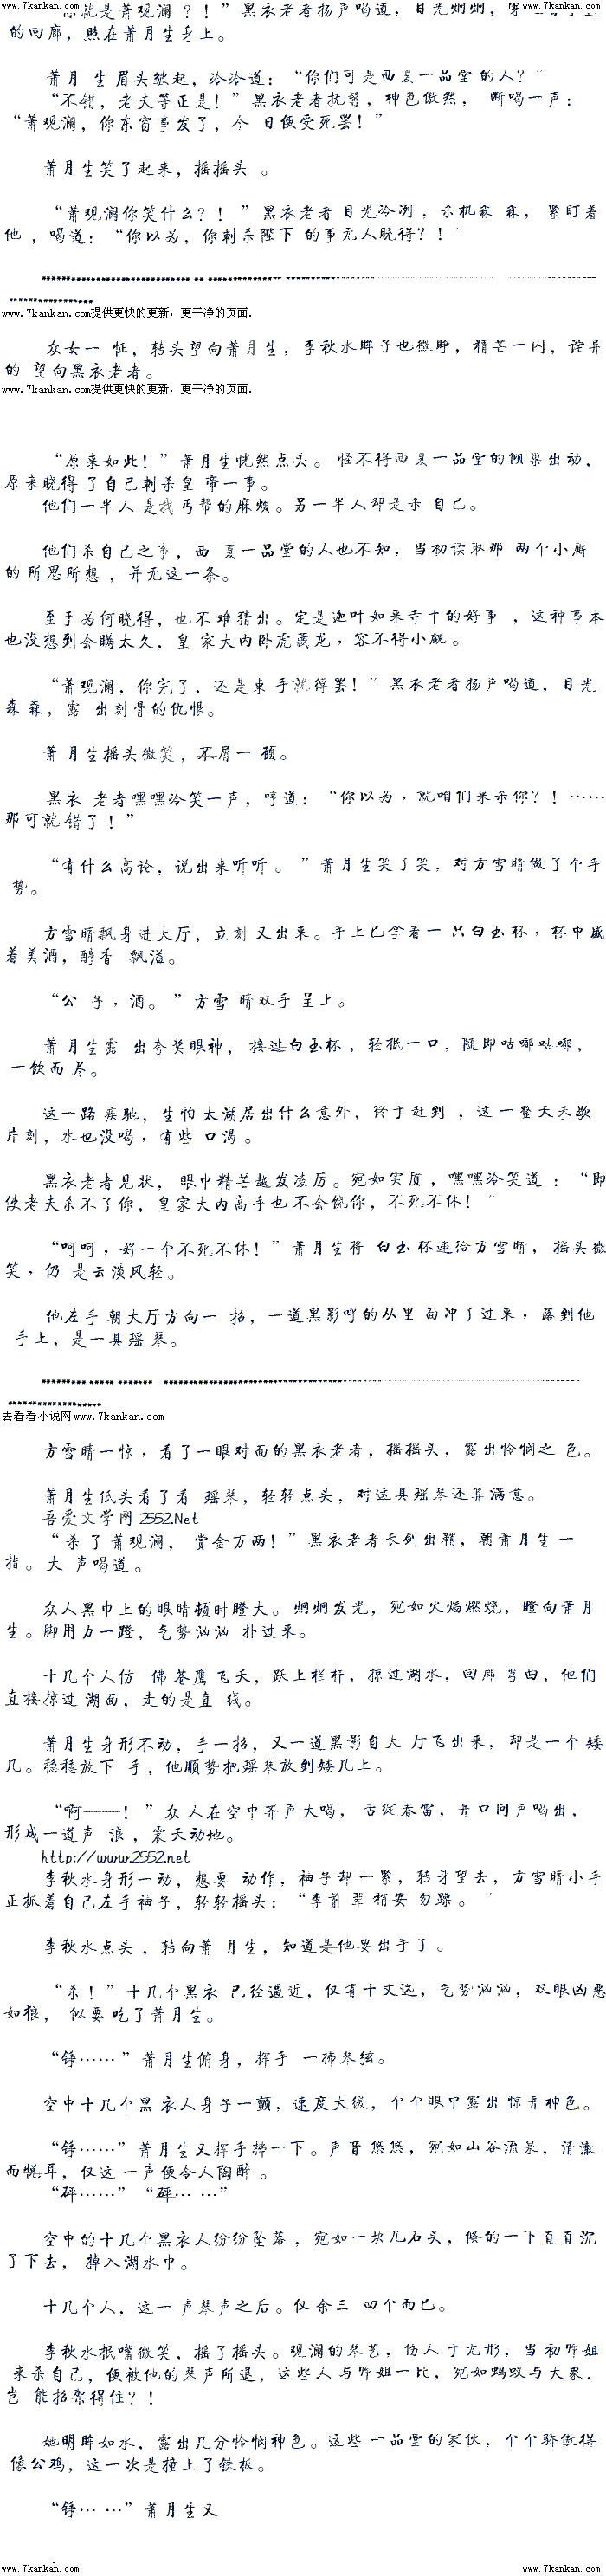 www.7kankan.com www.7kankan.com
你就是萧观澜？！”黑衣老者扬声喝道，目光炯炯，
的回廊，照在萧月生身上。
萧月 生眉头皱起，冷冷道：“你们可是西夏一品堂的人？”
“不错，老夫等正是！”黑衣老者抚髯，神色傲然， 断喝一声：
“萧观澜，你东窗事发了，今 日便受死罢！”
萧月生笑了起来，摇摇头 。
“萧观澜你笑什么？！”黑衣老者目光冷冽，杀机森 森，紧盯着
他，喝道：“你以为，你刺杀陛下 的事无人晓得？！”
www.7kankan.com提供更快的更新，更干净的页面.
众女一 怔，转头望向萧月生，李秋水眸子也微睁，精芒一闪，诧异
的 望向黑衣老者。
www.7kankan.com提供更快的更新，更干净的页面.
“原来如此！”萧月生恍然点头。 怪不得西夏一品堂的倾巢出动，
原来晓得了自己刺杀皇 帝一事。
他们一半人是找丐帮的麻烦。另一半人却是杀 自己。
他们杀自己之事，西 夏一品堂的人也不知，当初读取那 两个小厮
的 所思所想，并无这一条。
至于为何晓得，也不难猜出。定是迦叶如来寺干的好事 ，这种事本
也没想到会瞒太久，皇 家大内卧虎藏龙，容不得小觑。
“萧观澜，你完了，还是束 手就缚罢！”黑衣老者扬声喝道，目光
森森，露 出刻骨的仇恨。
萧 月生摇头微笑，不屑一 顾。
黑衣 老者嘿嘿冷笑一声，哼道：“你以为，就咱们来杀你？！……
那可就错了！”
“有什么高论，说出来听听。 ”萧月生笑了笑，对方雪晴做了个手
势。
方雪晴飘身进大厅，立刻又出来。手上已拿着一 只白玉杯，杯中盛
着美酒，醇香 飘溢。
“公 子，酒。”方雪 晴双手呈上。
萧 月生露 出夸奖眼神，接过白玉杯，轻抿一口，随即咕嘟咕嘟，
一饮而 尽。
这一路疾驰，生怕 太湖居出什么意外，终于赶到 ，这一整天未歇
片刻，水也没喝，有些 口渴。
黑衣老者见状， 眼中精芒越发凌厉。宛如实质，嘿嘿冷笑道 ：“即
使老夫杀不了你，皇家大内高手也不会饶你，不死不休！ ”
“呵呵，好一个不死不休！”萧月生将 白玉杯递给方雪晴，摇头微
笑，仍 是云淡风轻。
他左手 朝大厅方向一 招，一道黑影呼的从里 面冲了过来，落到他
手上，是一具瑶 琴。
去看看小说网www.7kankan.com
方雪晴一惊，看了一眼对面的黑衣老者，摇摇头，露出怜悯之 色。
萧月生低头看了看 瑶琴，轻轻点头，对这具瑶琴还算满意。
吾爱文学网2552.Net
“杀 了 萧观澜， 赏金万两！”黑衣老者长剑出鞘，朝萧月生 一
指。大 声喝道。
众人黑巾上的眼睛顿时瞪大。炯炯发光，宛如火焰燃烧，瞪向萧月
生。脚用力一蹬，气势汹汹 扑过来。
十几个人仿 佛苍鹰飞天，跃上栏杆，掠过湖水，回廊 弯曲，他们
直接掠过 湖面，走的是直 线。
萧月生身形不动，手一招，又一道黑影自大 厅飞出来，却是一个矮
几。稳稳放下 手，他顺势把瑶琴放到矮几上。
“啊———！ ”众人在空中齐声大喝， 舌绽春雷，异口同声喝出，
形成一道声 浪，震天动地。
http://www.2552.net
李秋水身形一动，想要 动作，袖子却一紧，转身望去，方雪晴小手
正抓着自己左手袖子，轻轻摇头：“李前 辈稍安 勿躁。 ”
李秋水点头，转向萧 月生，知道是他要出手了。
“杀！”十几个黑衣 已经逼近，仅有十丈远，气势汹汹，双眼凶恶
如狼， 似要吃了萧月生。
“铮……”萧月生俯身，挥手 一拂琴弦。
空中十几个黑 衣人身子一颤，速度大缓，个个眼中露出惊异神色。
“铮……”萧月生又挥手拂一下。声音 悠悠，宛如山谷流泉，清澈
而悦耳，仅这 一声便令人陶醉。
“砰……”“砰… …”
空中的十几个黑衣人纷纷坠落，宛如一块儿石头，倏的一下直直沉
了下去， 掉入湖水中。
十几个人，这一声琴声之后。仅 余三 四个而已。
李秋水抿嘴微笑，摇了摇头。观澜的琴艺，伤人于无形，当初师姐
来杀自己，便被他的琴声所退，这些人与师姐一比，宛如蚂蚁与大象.
岂 能招架得住？！
她明眸如水，露出几分怜悯神色。这些 一品堂的家伙，个个骄傲得
像公鸡，这一次是撞上了铁板。
“铮… …”萧月生又
www.7kankan.com www.7kankan.com